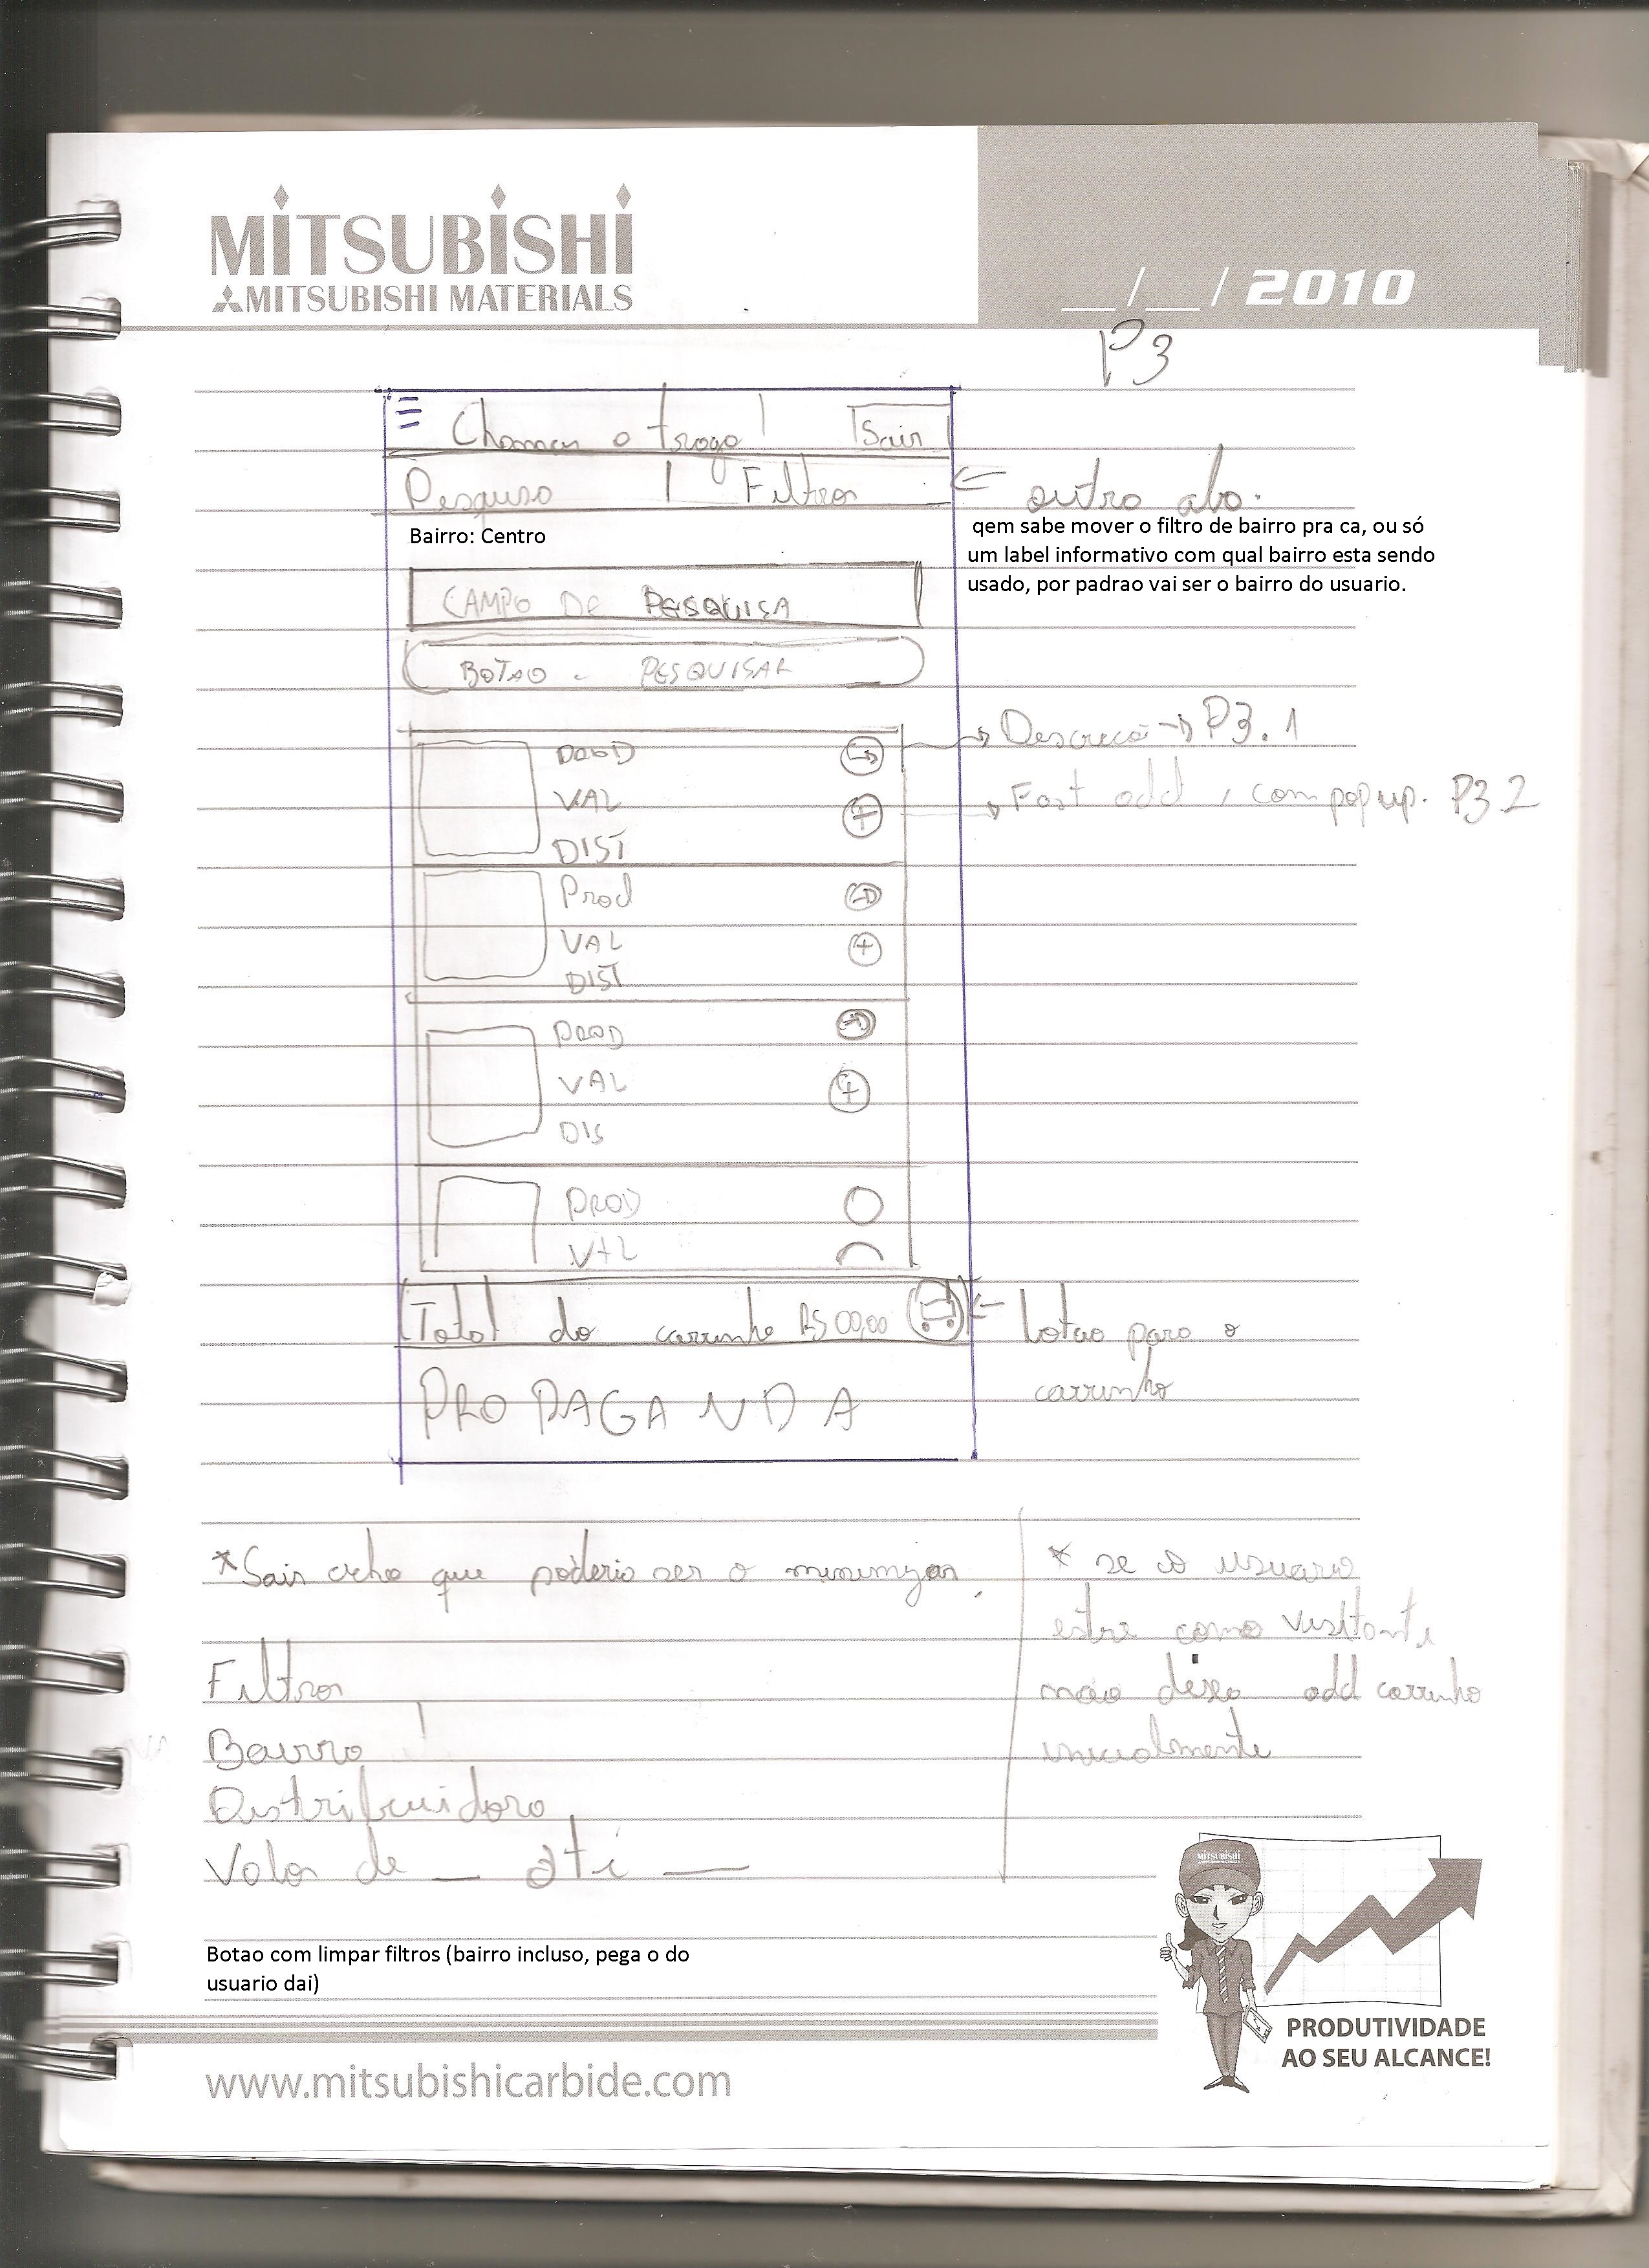 MITSUBISHI
MITSUBISHI MATERIALS
__/__/2010
P3
Chamar o trago! Sair
Pesquisa | Filtros ← outra aba.
Bairro: Centro
qem sabe mover o filtro de bairro pra ca, ou só
um label informativo com qual bairro esta sendo
usado, por padrao vai ser o bairro do usuario.
CAMPO DE PESQUISA
BOTAO - PESQUISAR
→ Descrição → P3.1
PROD →
VAL + → Fast add, com popup. P3.2
DIST
Prod →
VAL +
DIST
PROD →
VAL +
DIS
PROD
VAL
Total do carrinho R$ 00,00 ← botao para o
carrinho
PROPAGANDA
*Sair acho que poderia ser o minimizar,
* se o usuario
entre como visitante
não deixa add carrinho
inicialmente
Filtros
Bairro
Distribuidora
Valor de _ até __
Botao com limpar filtros (bairro incluso, pega o do
usuario dai)
MITSUBISHI
PRODUTIVIDADE
AO SEU ALCANCE!
www.mitsubishicarbide.com